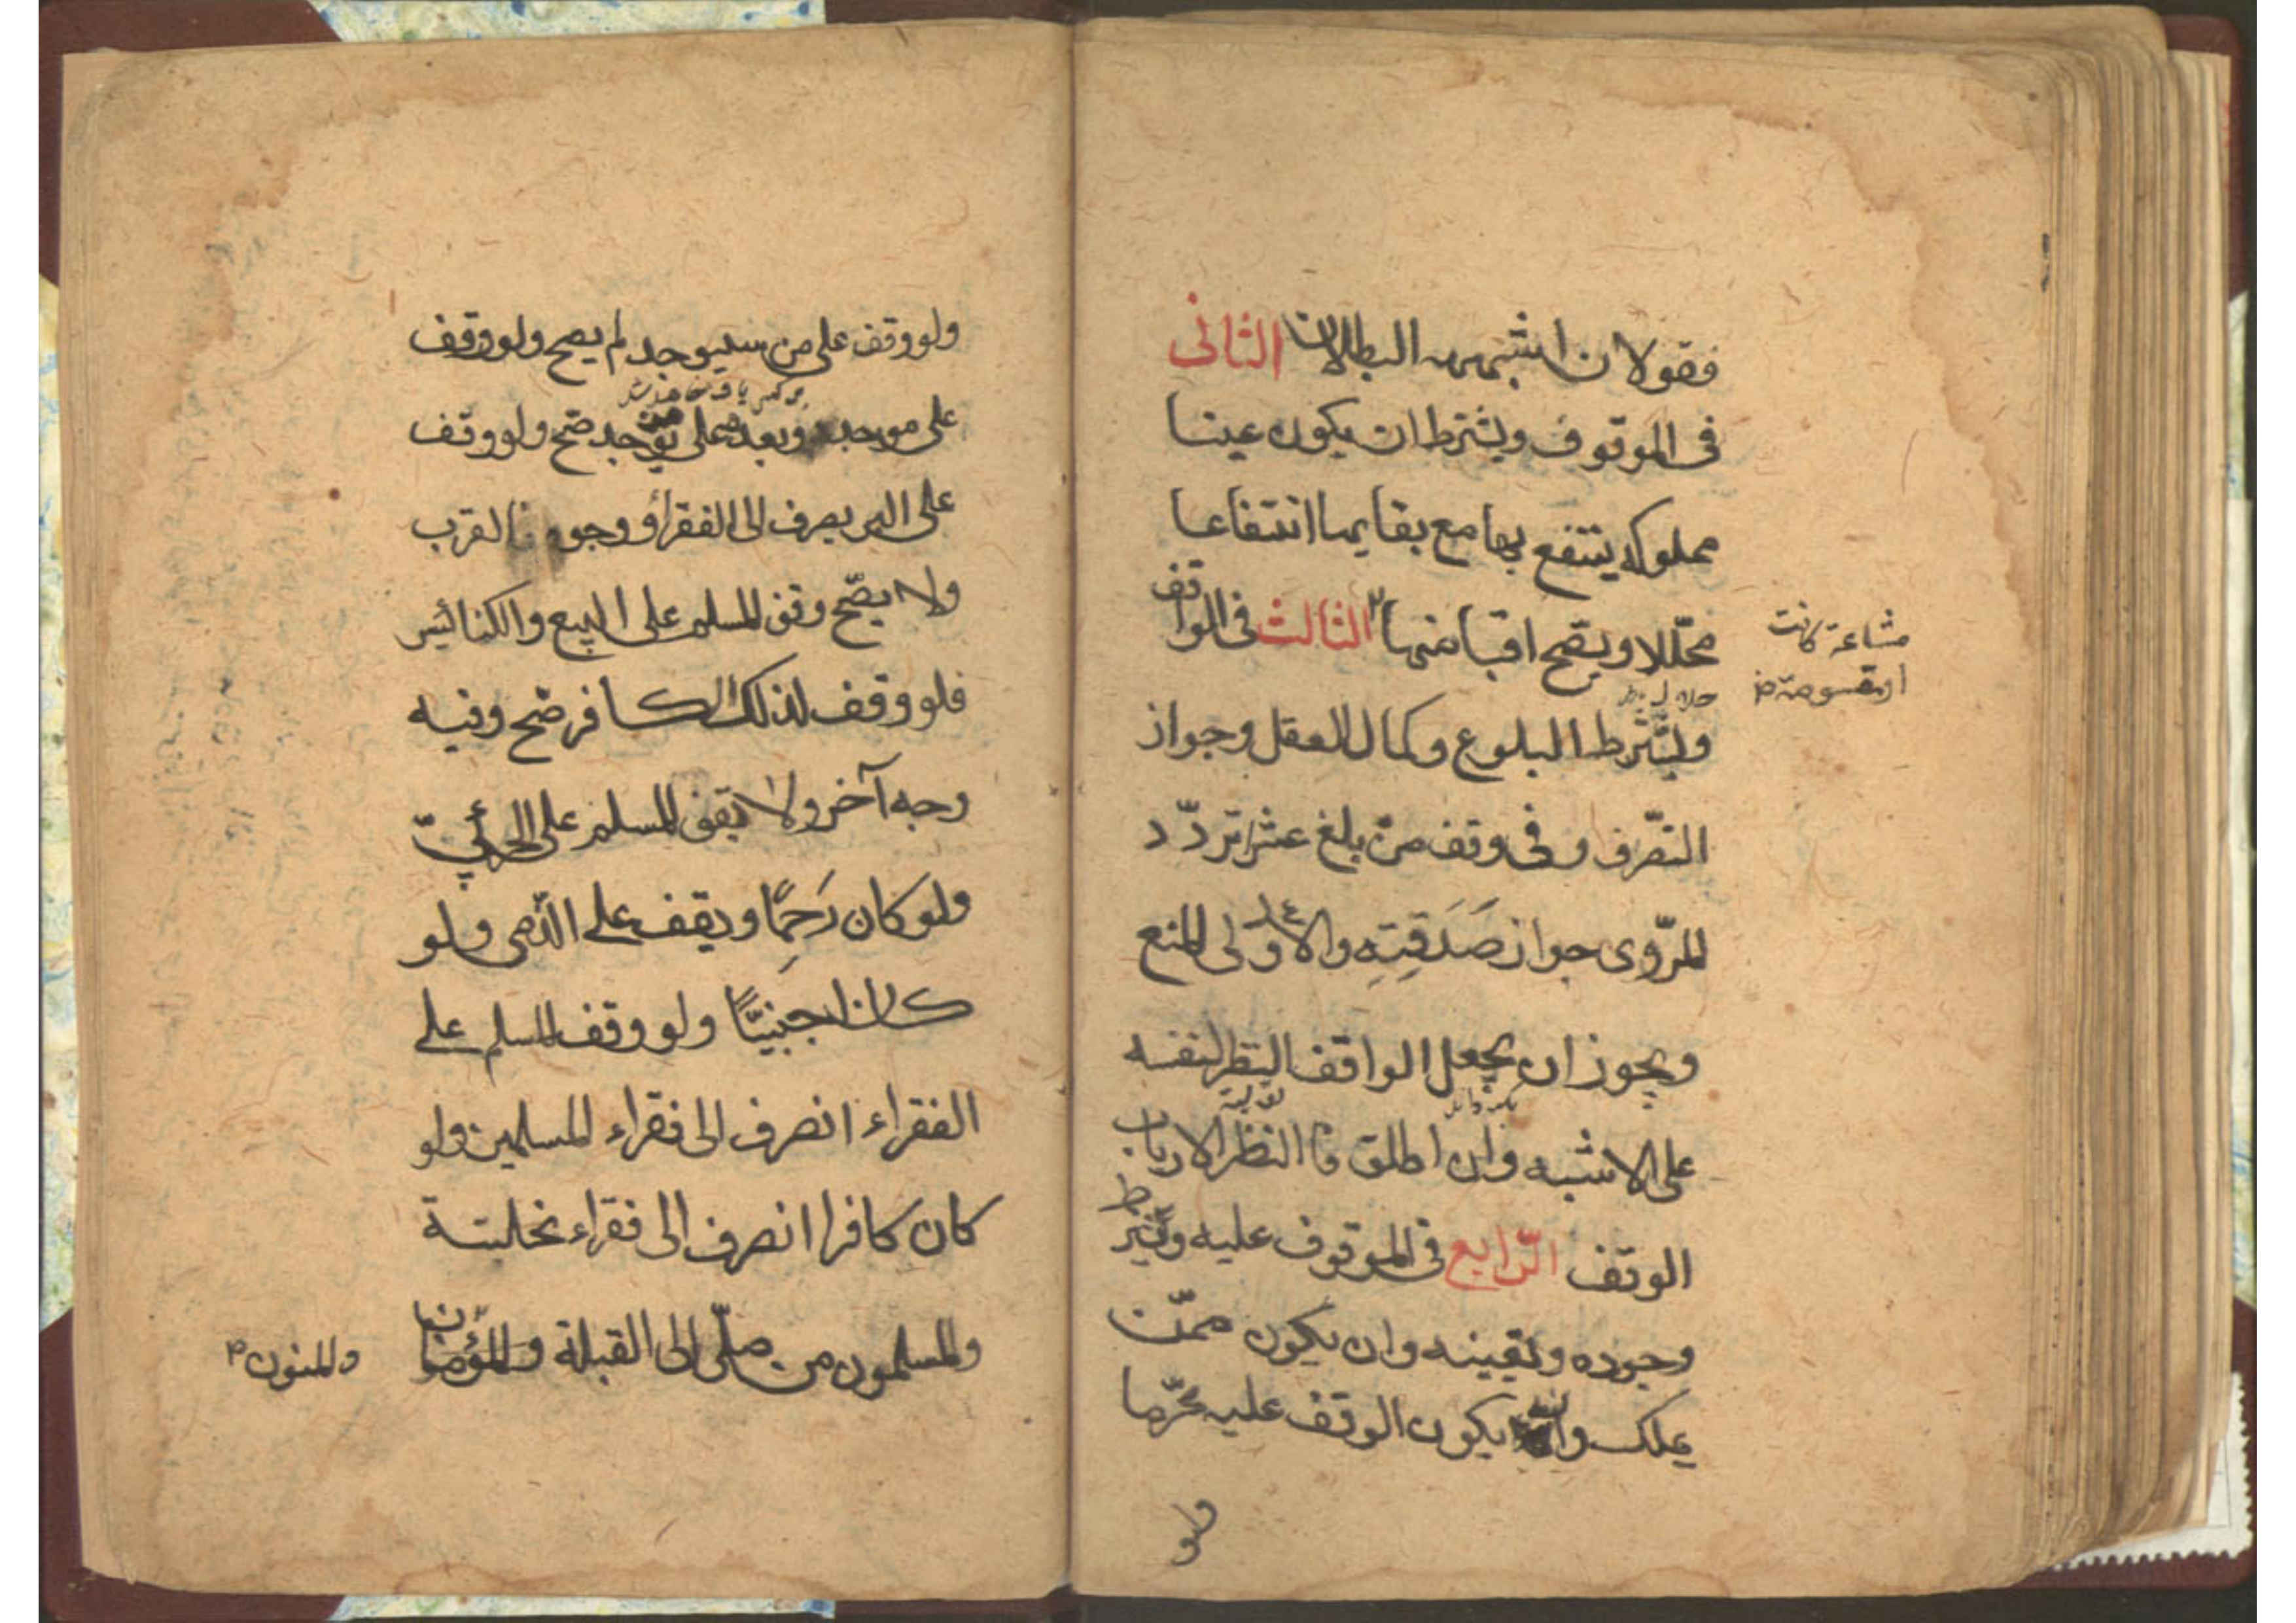 فقولان اشبههما البطلان الثانى
فى الموقوف ويشترط ان يكون عينا
مملوكه ينتفع بها مع بقايها انتفاعا
محللا ويصّح اقباضها الثالث فى الواقف
مشاعة كانت
او مقسومة
ويشترط البلوغ وكمال العقل وجواز
التصّرف وفى وقف من بلغ عشرا تردّد
المرّوى جواز صَدَقَتِهِ والاوّلى المنع
ويجوز ان يجعل الواقف النظر لنفسه
على الاشبه وان اطلق فاالنظّر لارباب
الوقف الرّابع فى الموقوف عليه ويشترط
وجوده وتعيينه وان يكون ممّن
يملك وان يكون الوقف عليه محرّما
ولو
ولو وقف على من سيوجد لم يصح ولو وقف
على موجد وبعده على من يوجد صّح ولو وقف
على البر يصرف الى الفقراؤ وجوه القرب
ولا يصّح وقف المسلم على البيع والكنائيس
فلو وقف لذلك الكافر صّح وفيه
وجه آخر ولا يقف المسلم على الحربيّ
ولو كان رَحِمًا ويقف على الذّمى ولو
كان اجنبيًّا ولو وقف المسلم على
الفقراء انصرف الى فقراء المسلمين ولو
كان كافرا انصرف الى فقراء نحلته
والمسلمون من صلّى الى القبلة والمؤمنون